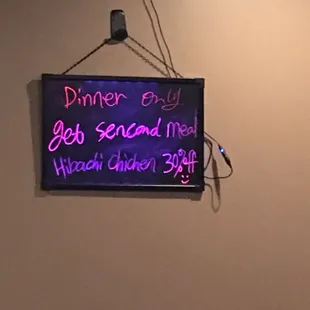 Dinner only
get sencond meal
Hibachi chichen 30% off